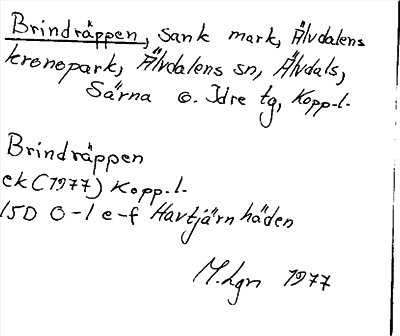 Brindräppen, sank mark, Älvdalens
kronopark, Älvdalens sn, Älvdals,
Särna o. Idre tg, Kopp.l.
Brindräppen
ek (1977) Kopp.l.
15D 0-1 e-f Havtjärnhäden
M.Lgn 1977